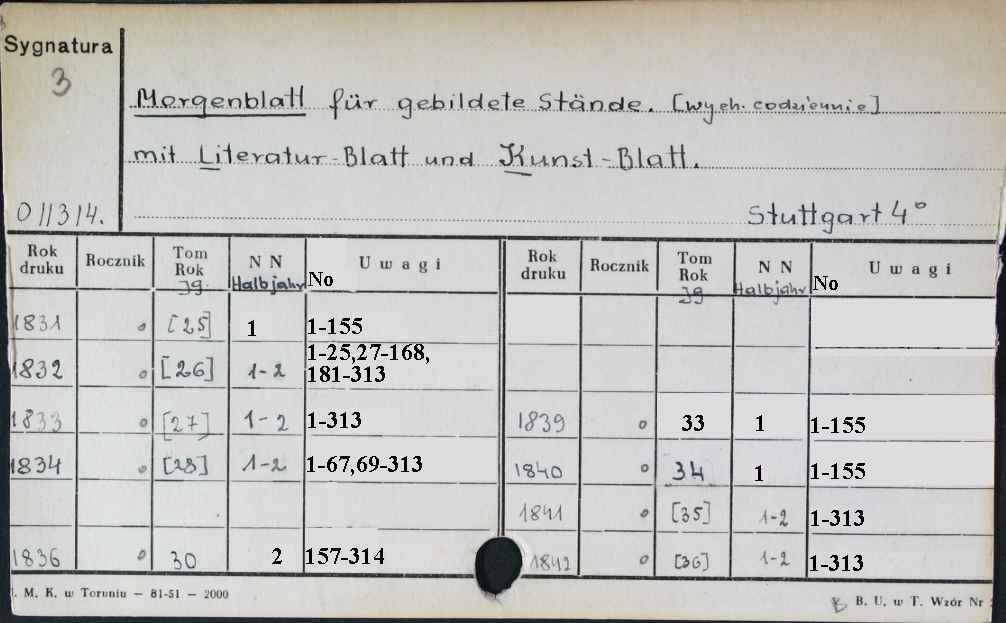 Sygnatura
3
Morgenblatt für gebildete Stände. [wych. codziennie]
mit Literatur-Blatt und Kunst-Blatt.
011314.
Stuttgart 4°
Rok druku Rocznik Tom Rok Jg. N N Halbjahr Uwagi No Rok druku Rocznik Tom Rok Jg N N Halbjahr Uwagi No
1831 o [25] 1 1-155
1832 o [26] 1-2 1-25,27-168, 181-313
1833 o [27] 1-2 1-313 1839 o 33 1 1-155
1834 o [28] 1-2 1-67,69-313 1840 o 34 1 1-155
1841 o [35] 1-2 1-313
1836 o 30 2 157-314 1842 o [36] 1-2 1-313
. M. K. w Toruniu — 81-51 — 2000
B. U. w T. Wzór Nr